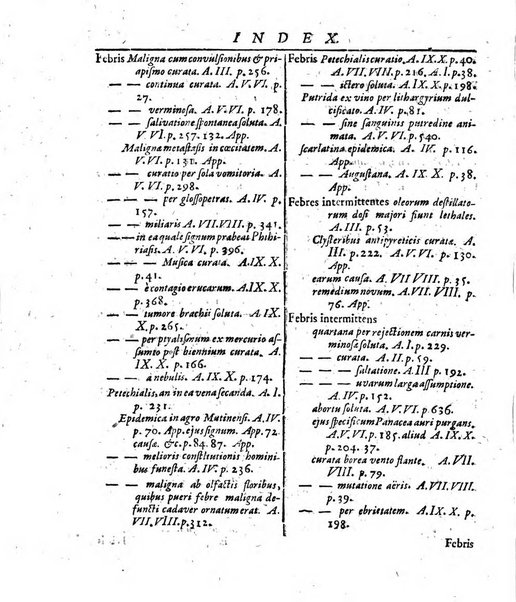 INDEX.
Febris Maligna cum convulsionibus & pri-
apismo curata. A. III. p. 256.
— — continua curata. A. V. VI. p.
27.
— — verminosa. A. V. VI. p. 178.
— — salivatione spontanea soluta. A.
V. VI. p. 257. 132. App.
Maligna metastasis in cœcitatem. A.
V. VI. p. 131. App.
— — curatio per sola vomitoria. A.
V. VI. p. 298.
— — per glossopetras. A. IV. p.
157.
— — miliaris A. VII. VIII. p. 341.
— — in ea quale signum præbeat Phthi-
riasis. A. V. VI. p. 396.
— — Musica curata. A. IX. X.
p. 41.
— — è contagio erucarum. A. IX. X.
p. 368.
— — tumore brachii soluta. A. IX.
X. p. 265.
— — per ptyalismum ex mercurio as-
sumto post biennium curata. A.
IX. X. p. 166.
— — à nebulis. A. IX. X. p. 174.
Petechialis, an in ea vena secanda. A. I.
p. 231.
Epidemica in agro Mutinensi. A. IV.
p. 70. App. ejus signum. App. 72
causæ &c. p. 84. 87. App.
— — melioris constitutionis homini-
bus funesta. A. IV. p. 236.
— — maligna ab olfactis floribus,
quibus pueri febre maligna de-
functi cadaver ornatum erat. A.
VII. VIII. p. 312.
Febris Petechialis curatio. A. IX. X. p. 40.
A. VII. VIII. p. 216. A. I. p. 38.
— — ictero soluta. A. IX. X. p. 198.
Putrida ex vino per lithargyrium dul-
cificato. A. IV. p. 81.
— — sine sanguinis putredine ani-
mata. A. V. VI. p. 540.
scarlatina epidemica. A. IV. p. 116.
App.
— — Augustana. A. IX. X. p. 38.
App.
Febres intermittentes oleorum destillato-
rum dosi majori fiunt lethales.
A. III. p. 53.
Clysteribus antipyreticis curatæ. A.
III. p. 222. A. V. VI. p. 130.
App.
earum causa. A. VII VIII. p. 35.
remedium novum. A. VII. VIII. p.
76. App.
Febris intermittens
quartana per rejectionem carnis ver-
minosæ soluta. A. I. p. 229.
— — curata. A. II. p. 59.
— — — saltatione. A. III p. 192.
— — — uvarum larga assumptione.
A. IV. p. 152.
abortu soluta. A. V. VI. p. 636.
ejus specificum Panacea auri purgans.
A. V. VI. p. 185. aliud A. IX. X.
p. 204. 37.
curata borea vento flante. A. VII.
VIII. p. 79.
— — mutatione aëris. A. VII. VIII.
p. 39.
— — per ebrietatem. A. IX. X. p.
198.
Febris